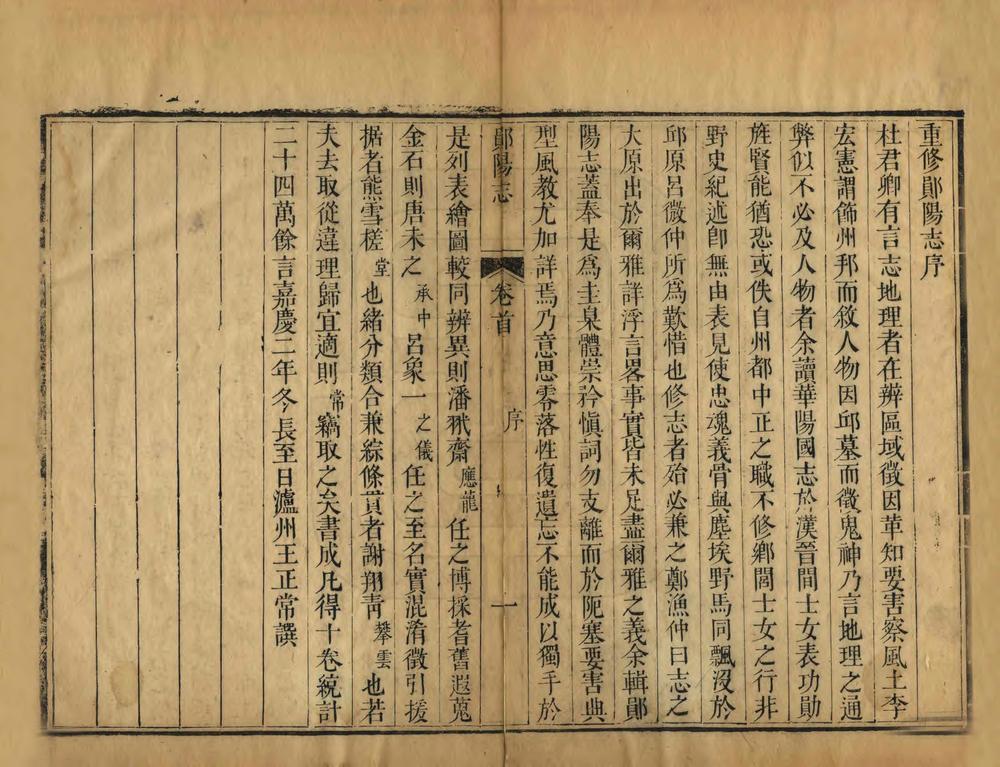 重修鄖陽志序
杜君卿有言志地理者在辨區域徵因革知要害察風土李
宏憲謂飾州邦而敘人物因邱墓而徵鬼神乃言地理之通
弊似不必及人物者余讀華陽國志於漢晉間士女表功勛
旌賢能猶恐或佚自州都中正之職不修鄉閭士女之行非
野史紀述卽無由表見使忠魂義骨與塵埃野馬同飄沒於
邱原呂微仲所爲歎惜也修志者殆必兼之鄭漁仲曰志之
大原出於爾雅詳浮言畧事實皆未足盡爾雅之義余輯鄖
陽志蓋奉是爲圭臬體崇矜愼詞勿支離而於阨塞要害典
型風教尤加詳焉乃意思零落性復遺忘不能成以獨手於
鄖陽志 卷首 序 一
是列表繪圖較同辨異則潘㹜齋應龍任之博採耆舊遐蒐
金石則唐未之承中呂象一之儀任之至名實混淆徵引援
据者熊雪槎堂也緒分類合兼綜條貫者謝翔靑攀雲也若
夫去取從違理歸宜適則常竊取之矣書成凡得十卷統計
二十四萬餘言嘉慶二年冬長至日瀘州王正常譔